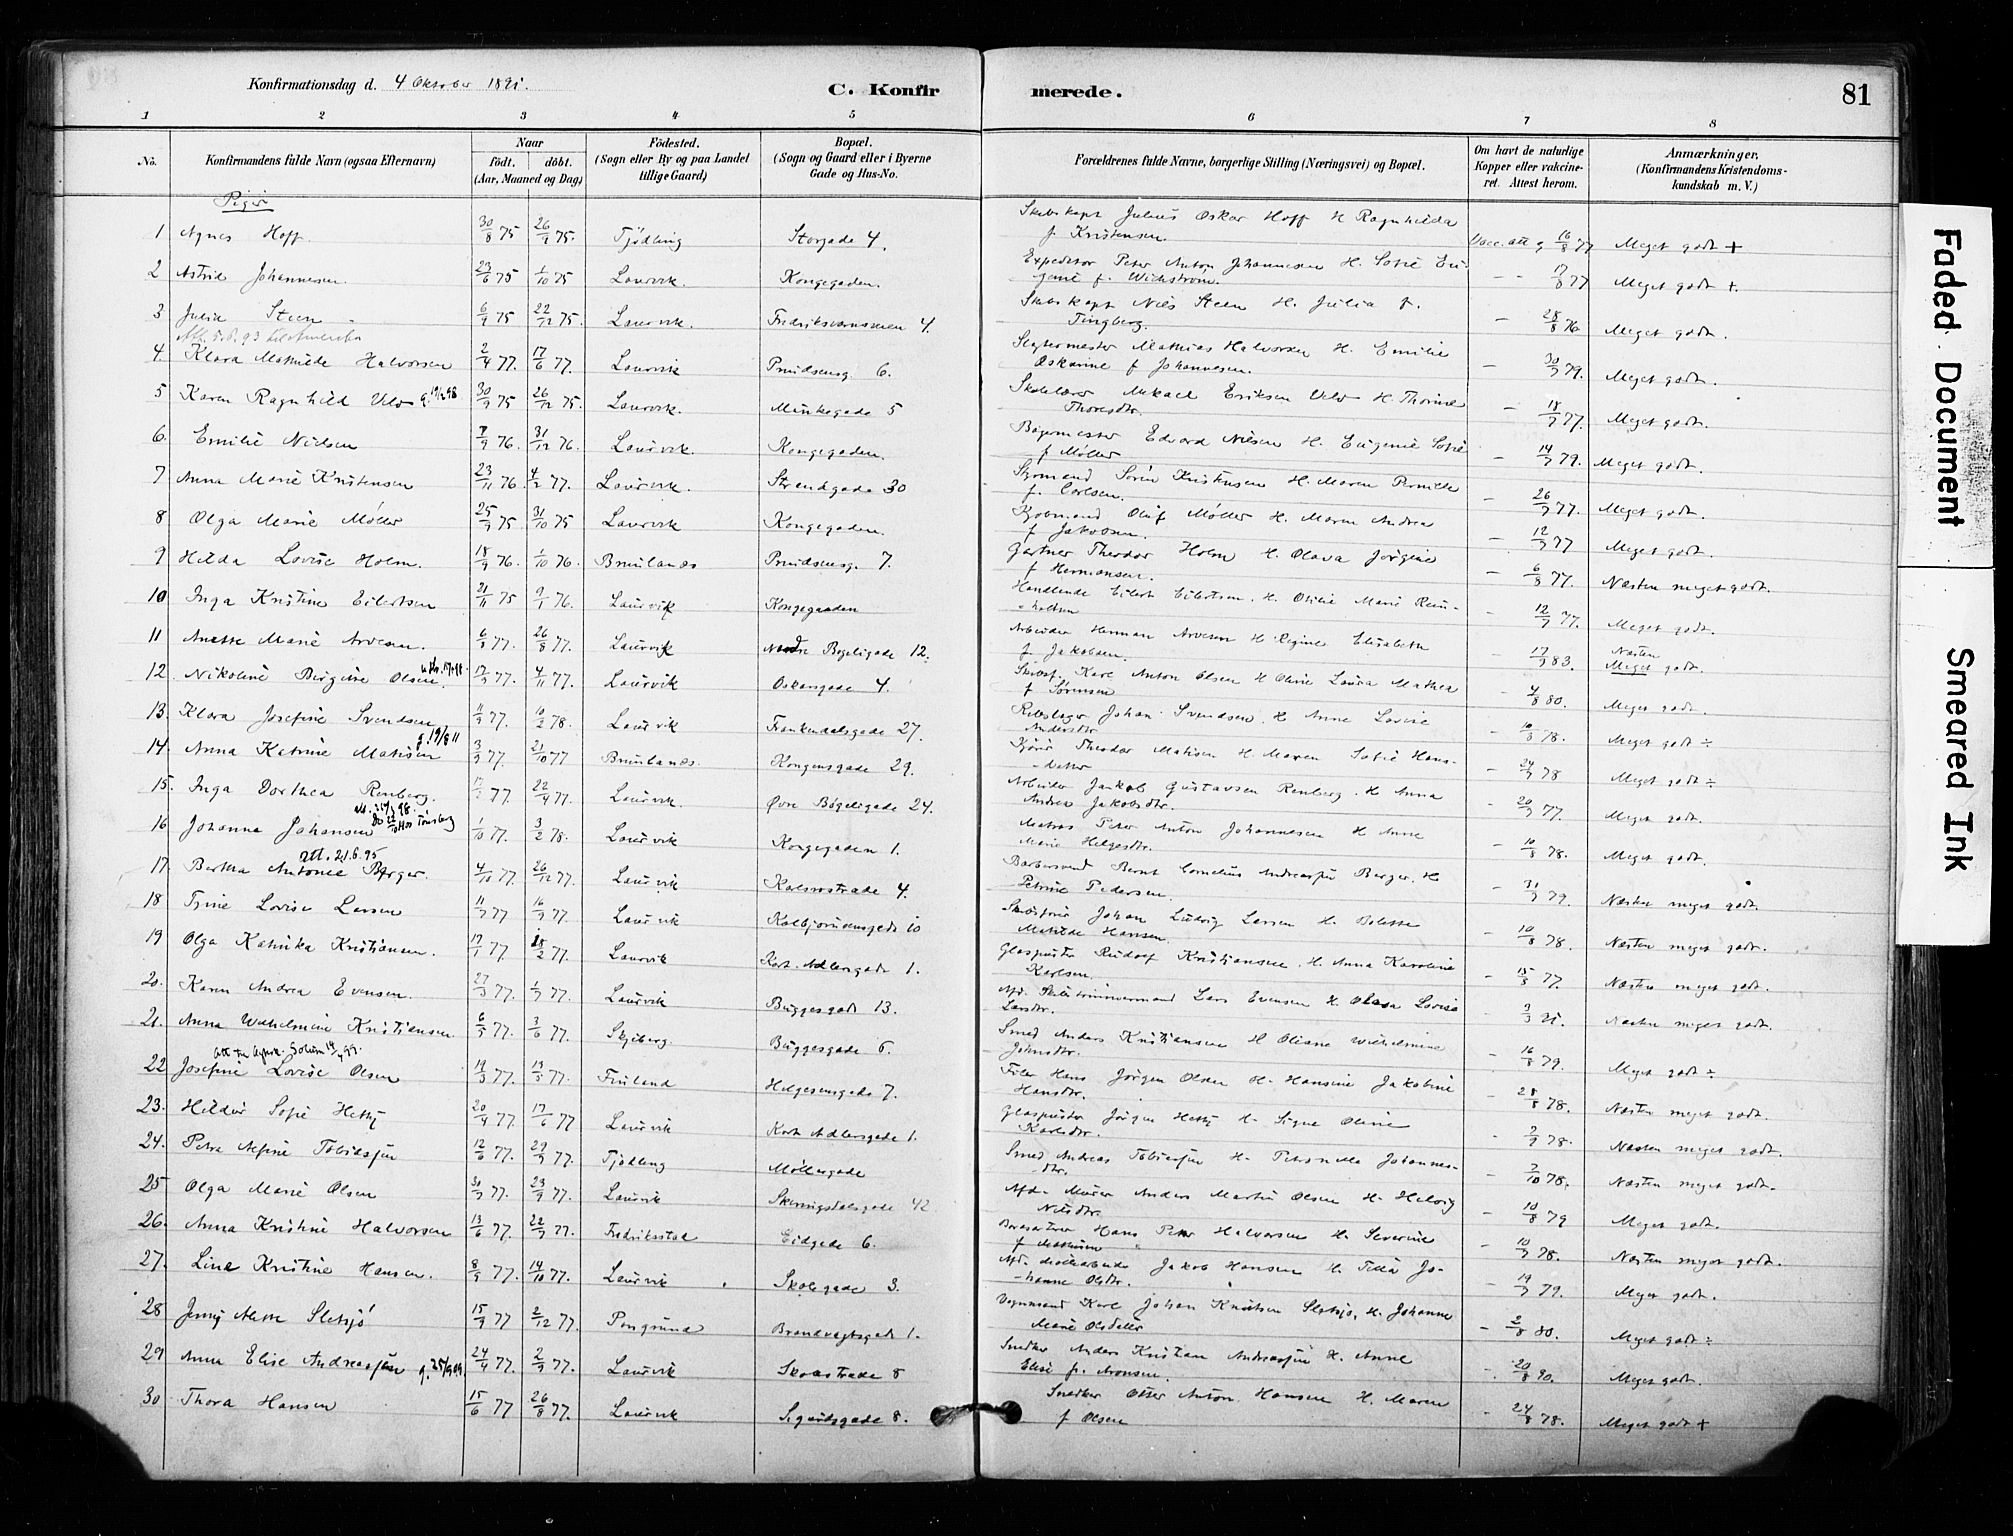 Konfirmationsdag d. 4 Oktober 1891.
C. Konfirmerede.
81
1 2 3 4 5 6 7 8
No.
Konfirmandens fulde Navn (ogsaa Efternavn)
Naar
födt. döbt.
(Aar, Maaned og Dag)
Födested.
(Sogn eller By og paa Landet
tillige Gaard)
Bopæl.
(Sogn og Gaard eller i Byerne
Gade og Hus-No.
Forældrenes fulde Navne, borgerlige Stilling (Næringsvei) og Bopæl.
Om havt de naturlige
Kopper eller vakcine-
ret. Attest herom.
Anmærkninger.
(Konfirmandens Kristendoms-
kundskab m. V.)
Piger
1 Agnes Hoff. 30/8 75 26/9 75. Tjödling Storgade 4. Skibskapt Julius Oskar Hoff H Ragnhilda
f Kristensen. Vacc. att g 16/8 77 Meget godt +
2 Astrid Johannesen. 23/6 75 1/10 75 Laurvik. Kongegaden. Expeditör Peter Anton Johannesen H. Sofie Eu-
genie f. Wickström. - - 17/8 77 Meget godt +.
3 Julia Steen 6/9 75 22/12 75. Laurvik. Fredriksvarnsveien 4. Skibskapt Nils Steen H. Julia f.
Tingberg. - 28/8 76 Meget godt.
4. Klara Mathilde Halvorsen 2/4 77. 17/6 77. Laurvik Prindsensg. 6. Slagtermester Mathias Halvorsen H. Emilie
Oskarine f Johannesen. - 30/7 79. Meget godt.
5 Karen Ragnhild Ulv 30/9 75 26/12 75. Laurvik. Munkegade 5 Skolelærer Mikael Eriksen Ulv H. Thorine
Thoresdtr. - 18/7 77. Meget godt.
6. Emilie Nielsen 7/9 76. 31/12 76. Laurvik. Kongegaden. Bagermester Edvard Nielsen H. Eugenie Sofie
f Møller - 14/7 79. Meget godt.
7 Anna Marie Kristensen 23/11 76 4/2 77. Laurvik. Strandgade 30 Styrmand Sören Kristensen H. Maren Pernille
f. Carlsen. - 26/7 77. Meget godt.
8 Olga Marie Møller 25/9 75 31/10 75 Laurvik Kongegaden. Kjøbmand Oluf Møller H. Maren Andrea
f Jakobsen. - 12/7 77 Meget godt.
9 Hilda Lovise Holm. 18/9 76. 1/10 76. Brunlanæs Prindsensg. 7. Gartner Theodor Holm H. Olava Jörgine
f Hermansen. - 6/8 77. Næsten meget godt.
10 Inga Kristine Eilertsen 21/11 75 9/1 76. Laurvik Kongegaden Handlende Eilert Eilertsen. H. Otilie Marie
- 12/7 77. Meget godt.
11 Anette Marie Arvesen. 6/7 77. 26/8 77. Laurvik Nedre Bøgeligade 12. Arbeider Herman Arvesen H. Regine Elisabeth
f. Jakobsen. - 17/9 83. Næsten
Meget godt.
12. Nikoline Birgine Olsen. 17/9 77. 4/11 77. Laurvik Oskarsgade 4. Karl Anton Olsen H. Oline Laura Mathea
f Sørensen - 4/8 80. Meget godt.
13. Klara Josefine Svendsen 11/9 77. 10/2 78. Laurvik Frankendalsgade 27. Rebslager Johan Svendsen. H Anne Lovise
Andersdtr - 10/8 78. Meget godt ÷
g. 19/8 11
14. Anna Katrine Matisen 3/9 77. 21/10 77 Brunlanæs. Kongensgade 29. Theodor Matisen H. Maren Sofie Hans-
datter - 24/7 78 Meget godt ÷
15. Inga Dorthea Renberg. 77 22/4 77. Laurvik. Øvre Bøgeligade 24. Arbeider Jakob Gustavsen Renberg. H Anna
Andrea Jakobsdtr. - 20/7 77. Meget godt.
16 Johanna Johansen 1/10 77. 3/2 78. Laurvik Kongegaden 1. Matros Peter Anton Johannesen H Anne
Marie Helgesdtr. - 10/8 78. Meget godt.
att. 21.6.95
17. Bertha Antonie Berger. 4/10 77. 26/12 77. Laurvik Karlsrostræde 4. Barbersvend Bernt Cornelius Andreassen Berger. H
Petrine Pedersen. - 31/7 79. Næsten meget godt.
18 Trine Lovise Larsen 11/7 77 16/9 77. Laurvik Kolbjørnsensgade 10 Johan Ludvig Larsen H. Bolette
Matilde Hansen. - 10/8 78. Næsten meget godt.
19 Olga Katinka Kristiansen. 17/1 77. 18/2 77. Laurvik Kort Adlersgade 1. Glaspuster Rudolf Kristiansen. H. Anna Karoline
Karlsen. - 15/8 77. Næsten meget godt.
20. Karen Andrea Evensen. 27/3 77. 1/7 77. Laurvik Buggesgade 13. Afd. Skibstömmermand Lars Evensen H. Olava Lovise
Larsdtr. - Næsten meget godt.
21. Anna Wilhelmine Kristiansen 6/5 77. 3/6 77. Skjeberg. Buggesgade 6. Smed Anders Kristiansen H Oliane Wilhelmine
Johnsdtr. - 16/8 79. Meget godt ÷
22 Josefine Lovise Olsen 77. 77. Finland Helgesensgade 7. Hans Jörgen Olsen H. Hansine Jakobine
Hansdtr. - 28/8 78. Næsten meget godt.
23. Hildur Sofie Hetty 20/4 77. 17/6 77 Laurvik Kort Adlersgade 1. Glaspuster Jörgen Hetty H. Signe Oline
Karlsdtr. - 2/9 78. Næsten meget godt.
24. Petra Tobiassen 12/6 77. 29/7 77. Tjödling Möllergade Smed Andreas Tobiassen H. Petronelle Johannes-
dtr. - 7/10 78. Næsten meget godt.
25 Olga Marie Olsen 77. 23/9 77. Laurvik Skiringsalsgade 42 Afd. Murer Anders Martin Olsen H. Helvig
Nilsdtr. - 10/8 79 Meget godt.
26. Anna Kristine Halvorsen 13/6 77. 22/7 77. Fredriksstad Eidgade 6. Hans Peter Halvorsen H Severine
f Mathisen - 10/7 78. Næsten meget godt.
27. Line Kristine Hansen. 8/9 77. 14/10 77. Laurvik Skolegade 3. Afd. Jakob Hansen H. Jo-
hanne Olsdtr. - 19/7 79. Meget godt.
28 Jenny Sletsjö 15/9 77. 2/12 77. Porsgrund Brandvagtsgade 1. Vognmand Karl Johan Knutsen Sletsjö. H. Johanne
Marie Olsdatter - 2/8 80. Meget godt ÷
29 Anna Elise Andreassen 24/4 77. 2/9 77. Laurvik Skostræde 8 Snedker Anders Kristian Andreassen H. Anne
Elise f. Aronsen. - 20/8 90. Meget godt.
30 Thora Hansen 15/6 77 26/8 77. Laurvik Sigurdsgade 8. Snedker Otter Anton Hansen H. Maren
f Olsen - 24/8 78. Meget godt +
Faded Document
Smeared Ink